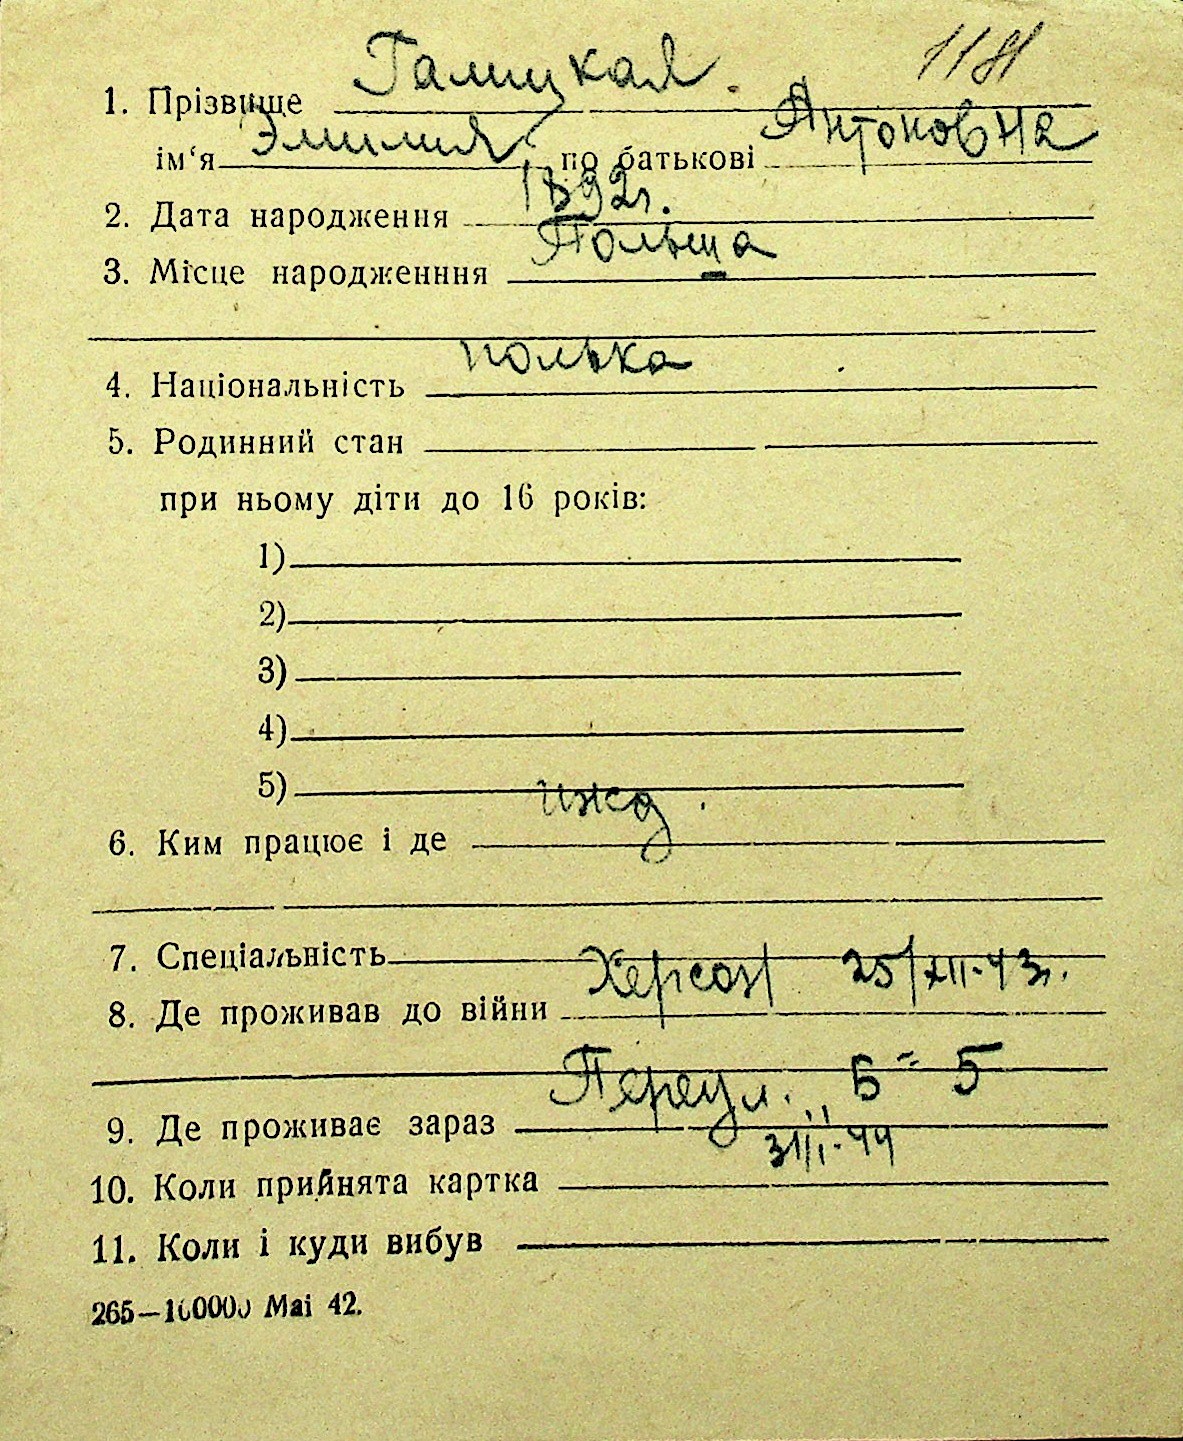 1181
1. Прізвище Галицкая.
ім‘я Эмилия по батькові Антоновна
2. Дата народження 1892г.
3. Місце народженння Польша
4. Національність полька
5. Родинний стан
при ньому діти до 16 років:
1)
2)
3)
4)
5)
6. Ким працює і де ижд.
7. Спеціальність
8. Де проживав до війни Херсон 25/XII-43г.
9. Де проживає зараз 5
10. Коли прийнята картка 31/I-44
11. Коли і куди вибув
265—100000 Mai 42.